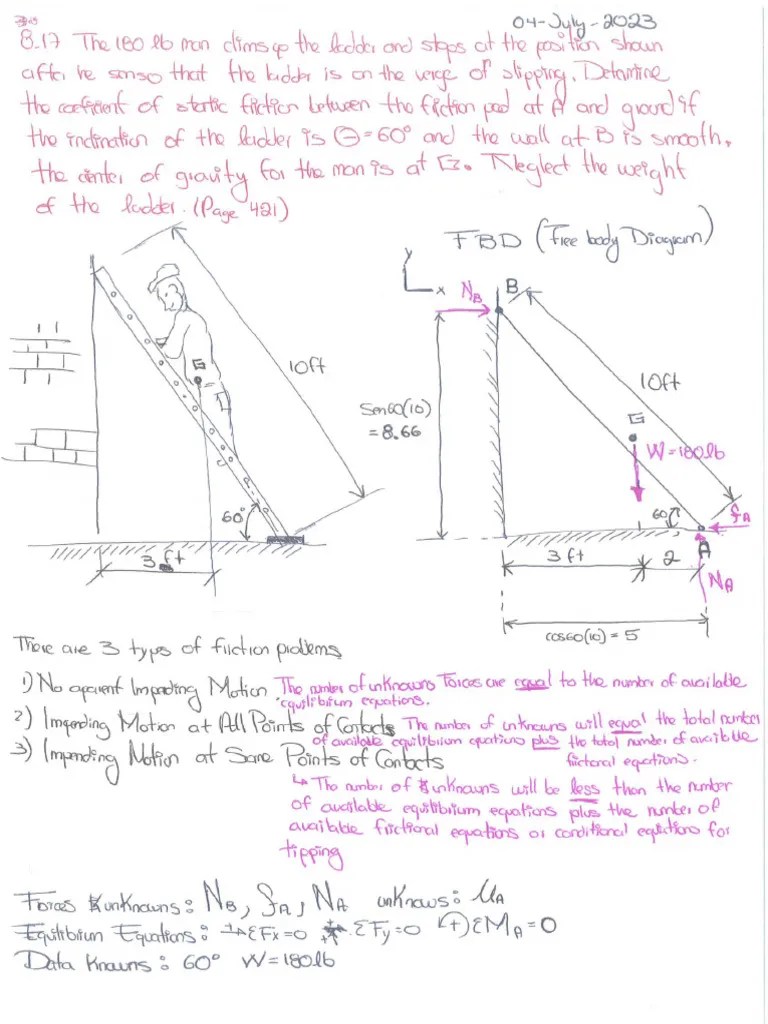 04-July-2023
8.17 The 180 lb man climsup the ladder and stops at the position shown
after he senso that the ladder is on the verge of slipping. Determine
the coeficient of static friction between the friction pad at A and ground if
the inclination of the ladder is Θ=60° and the wall at B is smooth.
the center of gravity for the man is at G. Neglect the weight
of the ladder. (Page 421)
FBD (Free body Diagram)
y
x
NB
B
10ft
G
60°
3 ft
Sen60(10)
= 8.66
10ft
G
W=180lb
60°
fA
A
NA
3 ft
2
cos60(10) = 5
There are 3 types of friction problems
1) No aparent Impending Motion The number of unknowns Forces are equal to the number of available
equilibrium equations.
2) Impending Motion at All Points of Contacts The number of unknowns will equal the total number
of available equilibrium equations plus the total number of available
frictional equations.
3) Impending Motion at Some Points of Contacts
↳ The number of unknowns will be less than the number
of available equilibrium equations plus the number of
available frictional equations or conditional equations for
tipping
Forces & unknowns: NB, fA, NA unknows: μA
Equilibrium Equations: →+ ΣFx=0 +↑ ΣFy=0 ↺+ ΣMA=0
Data Knowns: 60° W=180lb